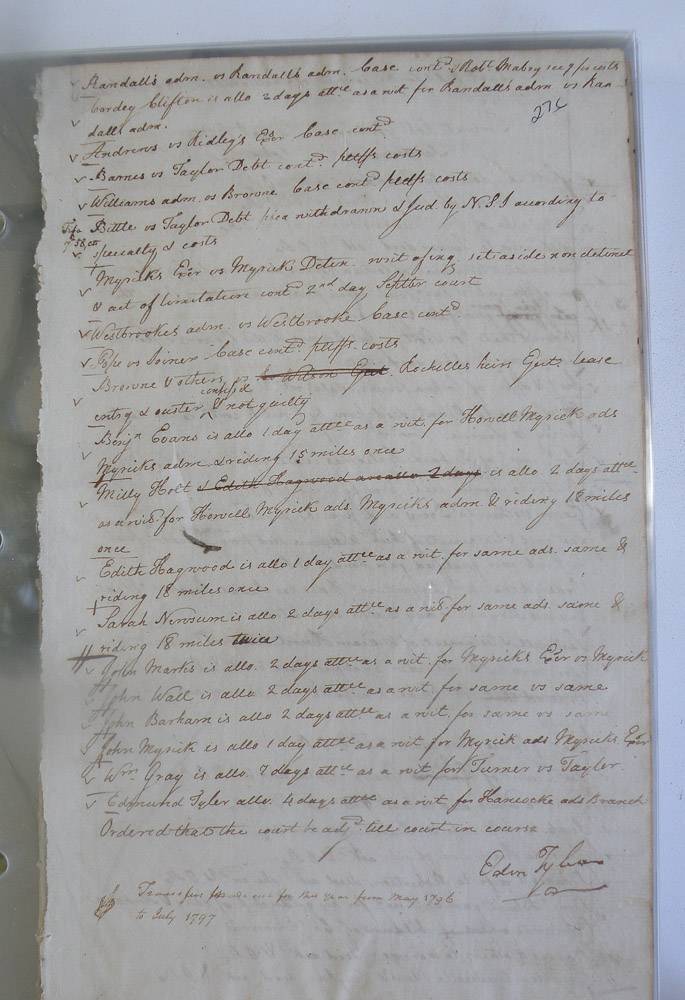 Randalls adm. vs Randalls adm. Case contd. & Robt. Mabry see 9 for costs
Cordey Clifton is allo 2 days attce as a wit for Randalls adm vs Ran
dalls adm.
276
Andrews vs Ridley's Exor Case contd
Barnes vs Taylor Debt contd. pltffs costs
Williams adm. vs Browne Case contd pltffs costs
Bittle vs Taylor Debt plea withdrawn & Jud by N.S.I according to
specialty & costs
Myricks Exor vs Myrick Detin. writ of inq set aside non detinet
& act of limitation contd 2nd day Septbr court
Westbrookes adm. vs Westbrooke Case contd
Pope vs Joiner Case contd pltffs costs
Browne & others vs Wilson Eject. Rochelles heirs Eject lease
entry & ouster confessed & not guilty
Benjn Evans is allo 1 day attce as a wit. for Howell Myrick ads
Myricks adm. & riding 15 miles once
Milly Holt & Edith Hagwood are allo 2 days is allo 2 days attce
as a wit. for Howell Myrick ads. Myricks adm. & riding 18 miles
once
Edith Hagwood is allo 1 day attce as a wit. for same ads. same &
riding 18 miles once
Sarah Newsum is allo 2 days attce as a wit for same ads. same &
riding 18 miles twice
John Marks is allo. 2 days attce as a wit. for Myricks Exor vs Myrick
John Wall is allo 2 days attce as a wit. for same vs same
John Barham is allo 2 days attce as a wit. for same vs same
John Myrick is allo 1 day attce as a wit for Myrick ads Myricks Exor
Wm. Gray is allo. 7 days attce as a wit for Turner vs Taylor.
Edmund Tyler allo. 4 days attce as a wit for Hancocke ads Branch
Ordered that the court be adjd. till court in course
Edwn Tyler
for this year from May 1796
to July 1797